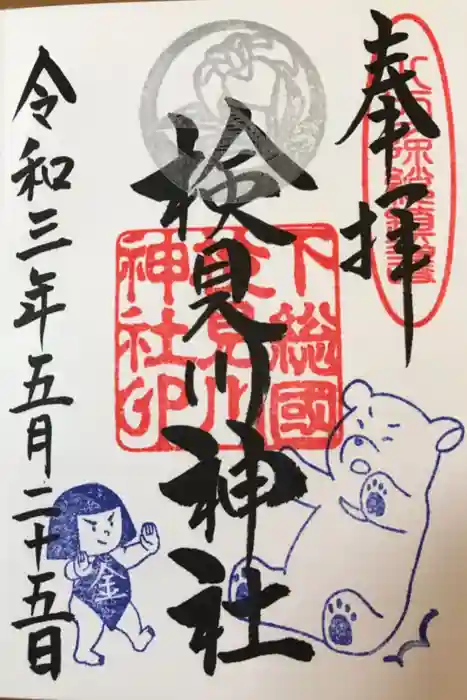 奉拝
検見川神社
下総國
検見川
神社印
令和三年五月二十五日
金